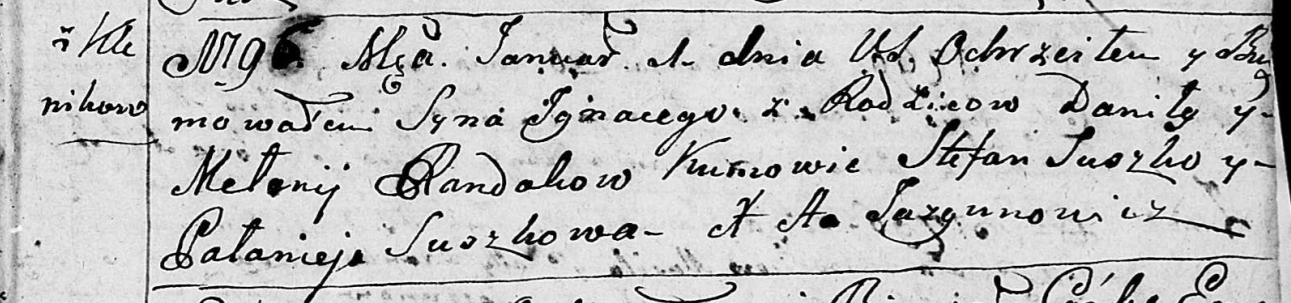 z Kle
nikow
1796 Mca Januar 1 dnia Ochrzciłem y Bu
mowałem Syna Ignacego z Rodzicow Daniły y
Mełanij Randakow Kumowie Stefan Suszko y
Pałanieja Suszkowa X A Jazgunowicz